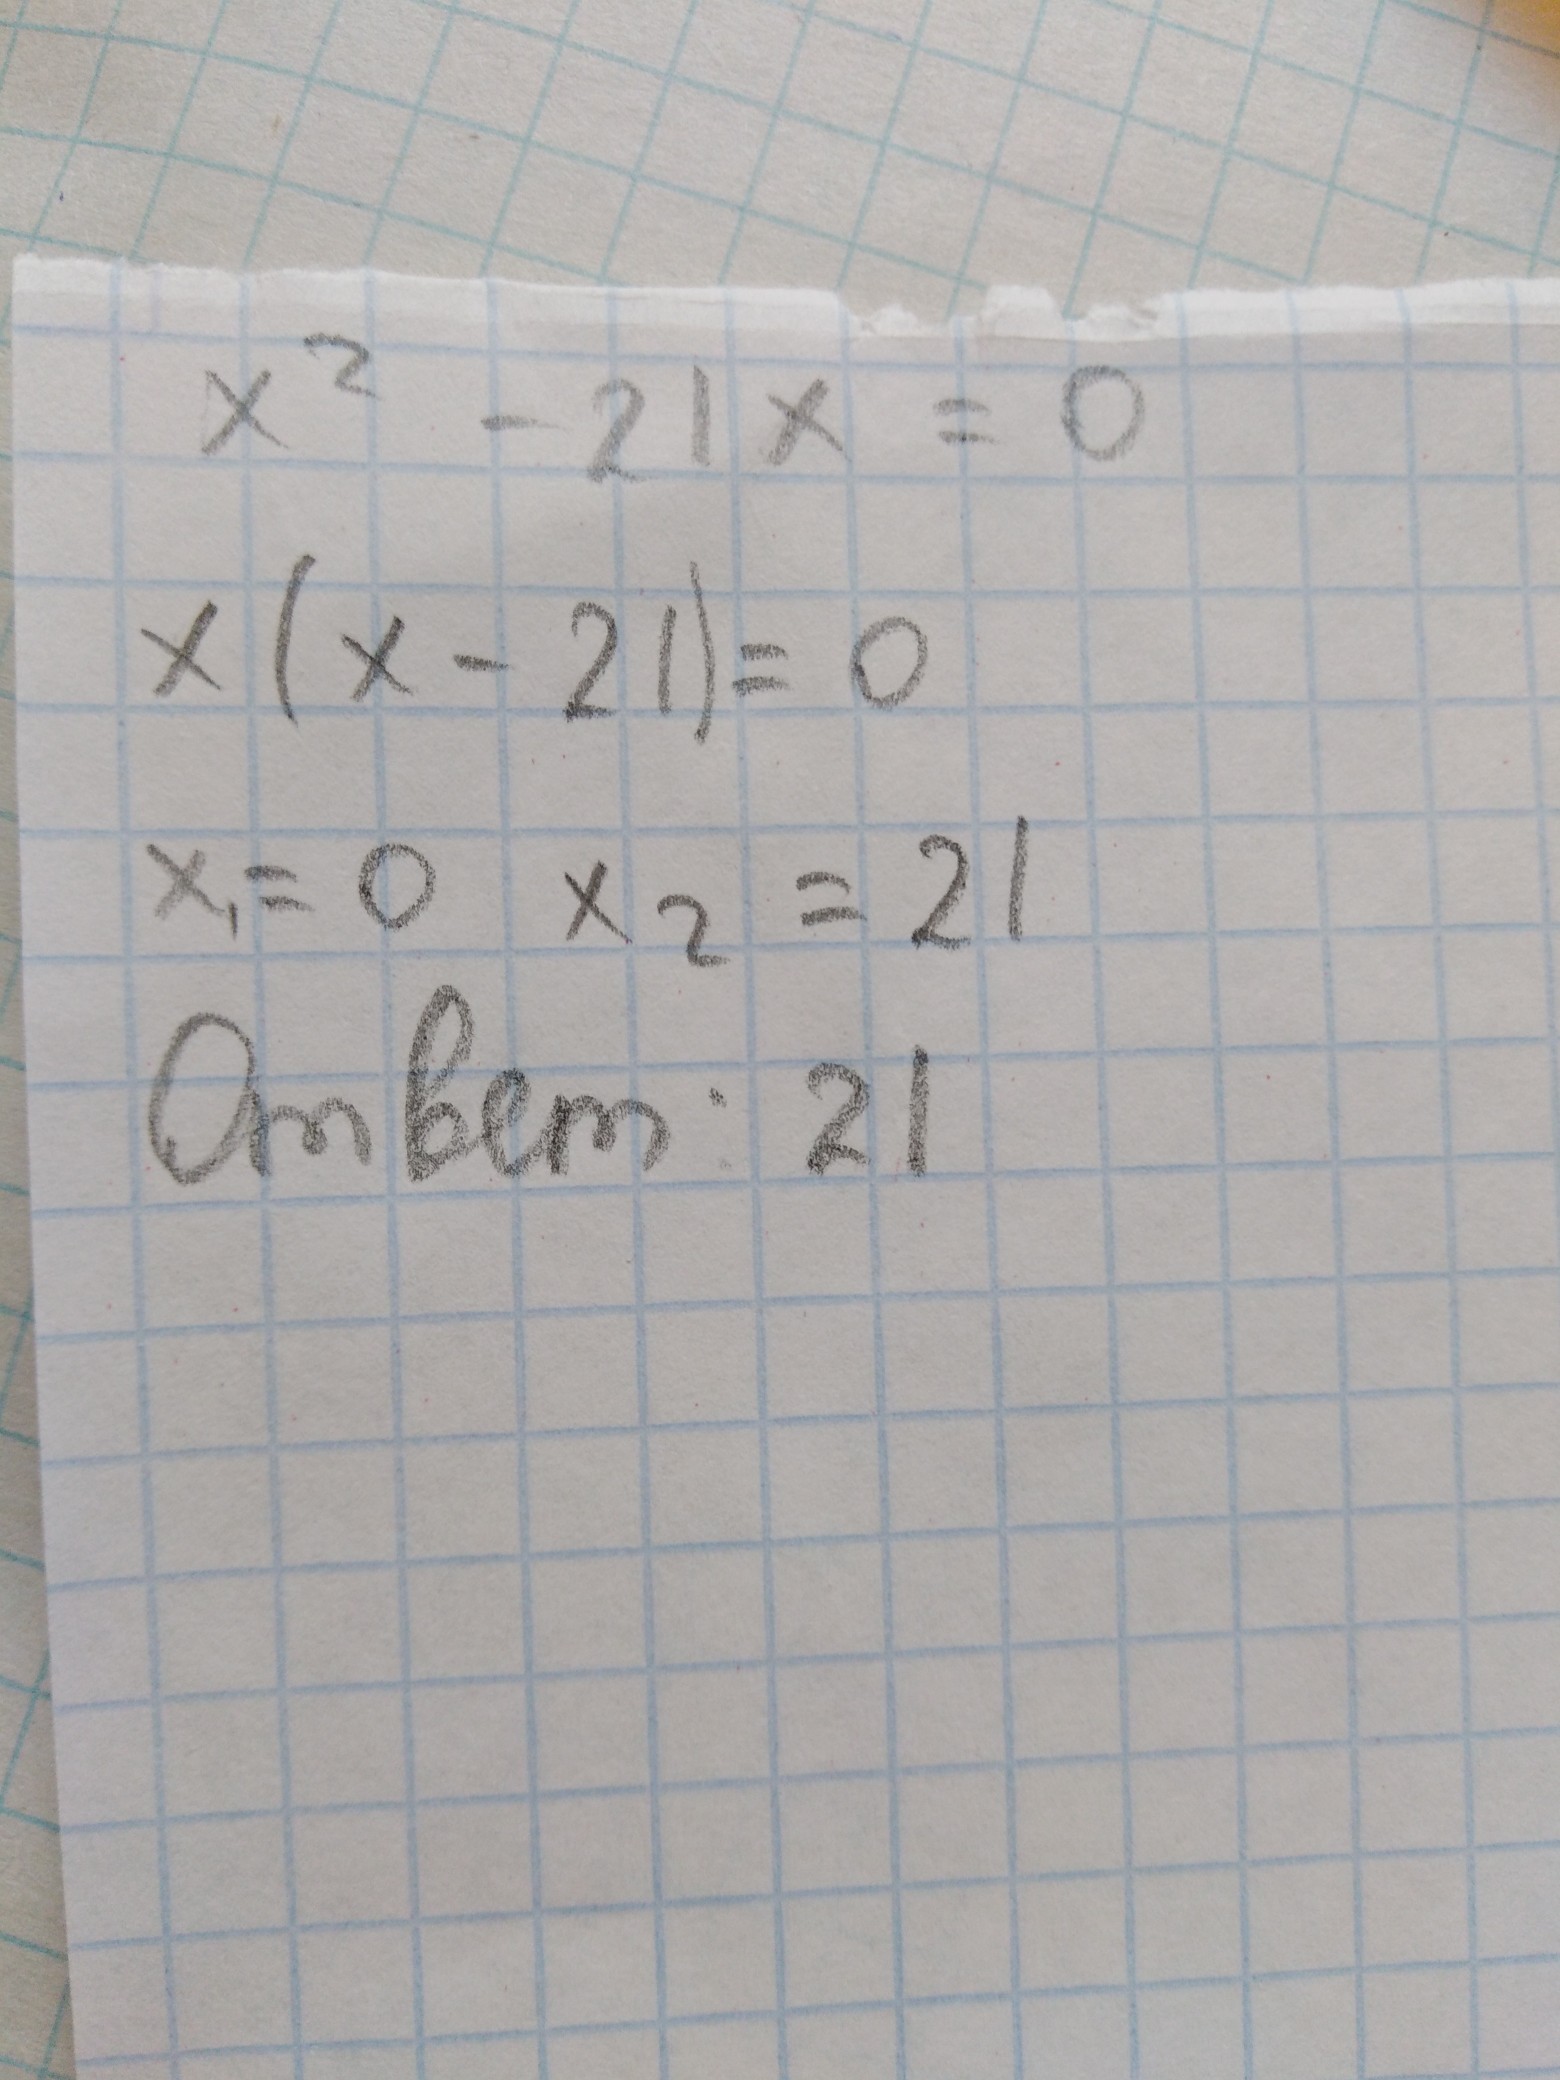 x² - 21x = 0
x(x - 21) = 0
x₁ = 0 x₂ = 21
Ответ: 21